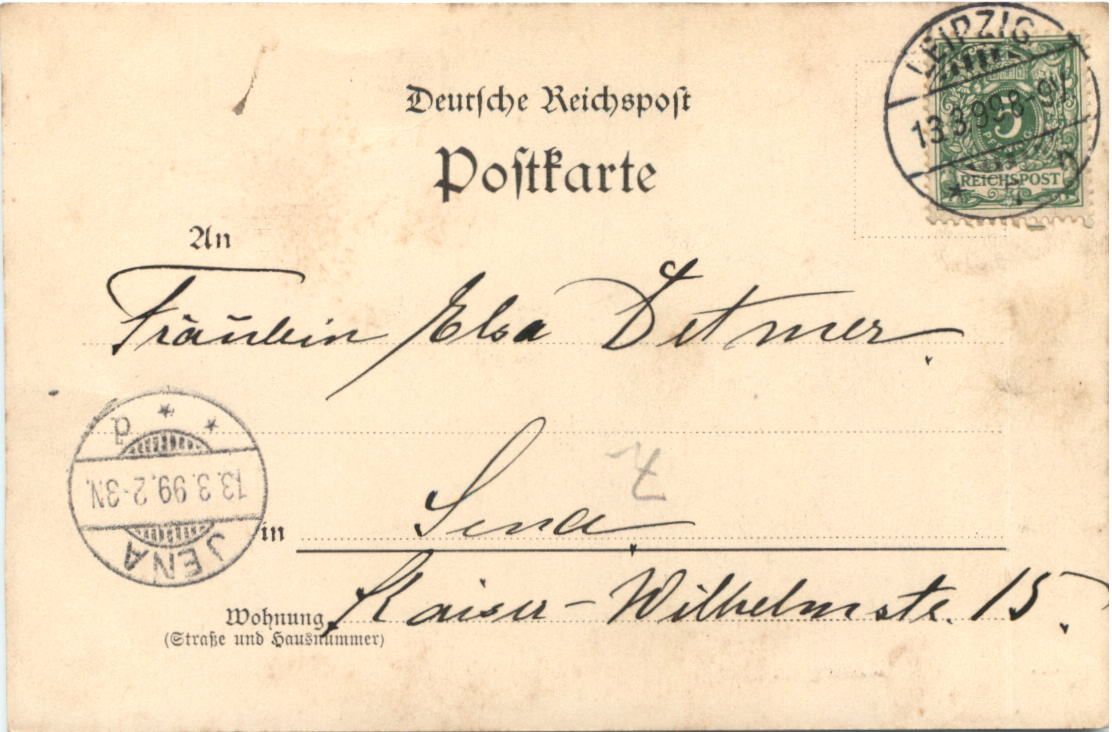 Deutsche Reichspost
Postkarte
LEIPZIG
13.3.99.8-9V.
5
PFENNIG
REICHSPOST
An
Fräulein Elsa Detmer.
d
13.3.99.2-3N.
JENA
in Jena.
7
Wohnung Kaiser-Wilhelmstr. 15.
(Straße und Hausnummer)